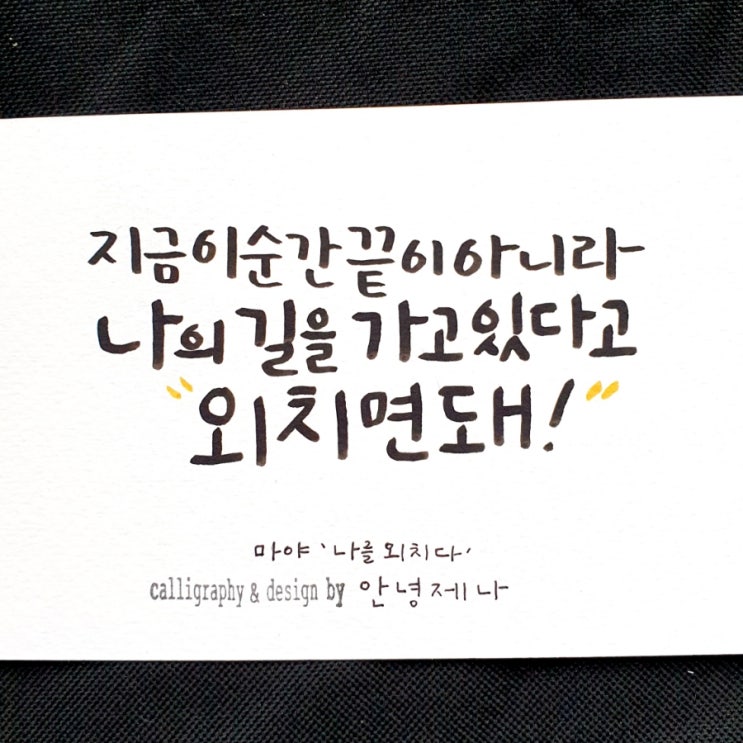 지금이순간끝이아니라
나의길을 가고있다고
"외치면돼!"
마야 '나를외치다'
calligraphy & design by 안녕제나